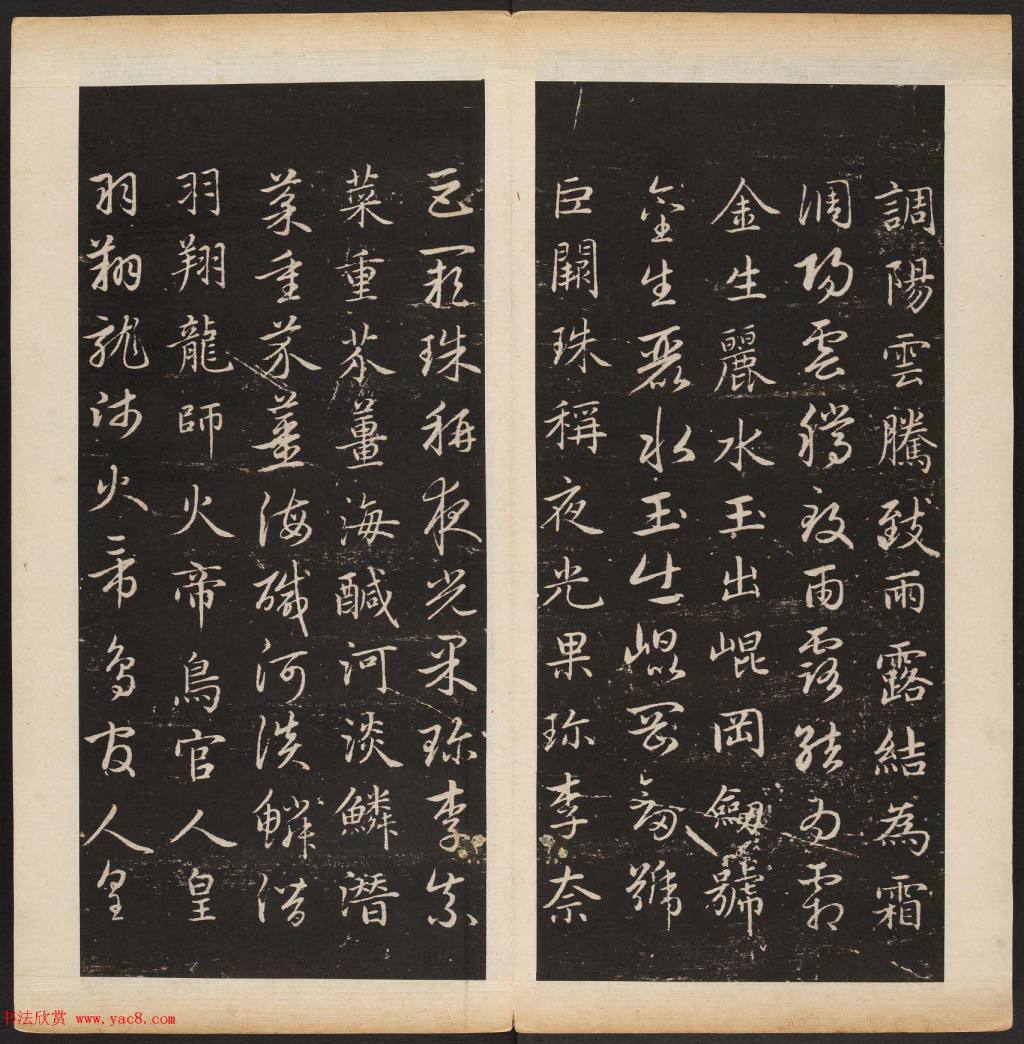 調陽雲騰致雨露結為霜
調陽雲騰致雨露結為霜
金生麗水玉出崐岡劔號
金生麗水玉出崐岡劔號
巨闕珠稱夜光果珎李柰
巨闕珠稱夜光果珎李柰
菜重芥薑海醎河淡鱗潛
菜重芥薑海醎河淡鱗潛
羽翔龍師火帝鳥官人皇
羽翔龍師火帝鳥官人皇
书法欣赏 www.yac8.com